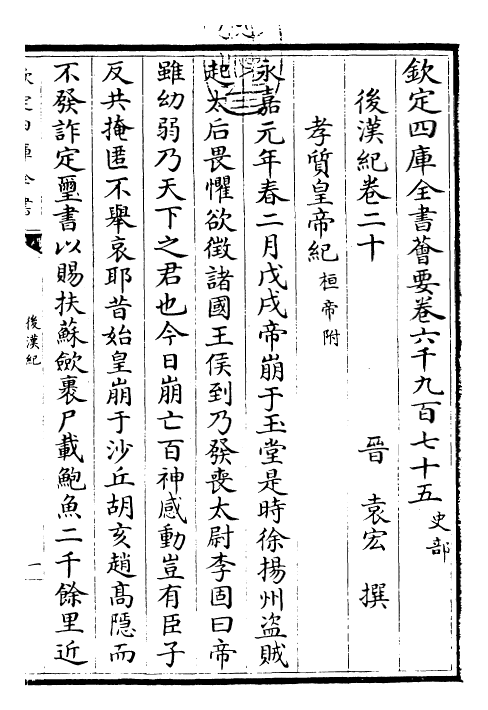 欽定四庫全書薈要卷六千九百七十五 史部
後漢紀卷二十 晉 袁宏 撰
孝質皇帝紀 桓帝附
永嘉元年春二月戊戌帝崩于玉堂是時徐揚州盜賊
起太后畏懼欲徵諸國王侯到乃發喪太尉李固曰帝
雖幼弱乃天下之君也今日崩亡百神感動豈有臣子
反共掩匿不舉哀耶昔始皇崩于沙丘胡亥趙髙隠而
不發詐定璽書以賜扶蘇歛裹尸載鮑魚二千餘里近
欽定四庫全書
後漢紀
一